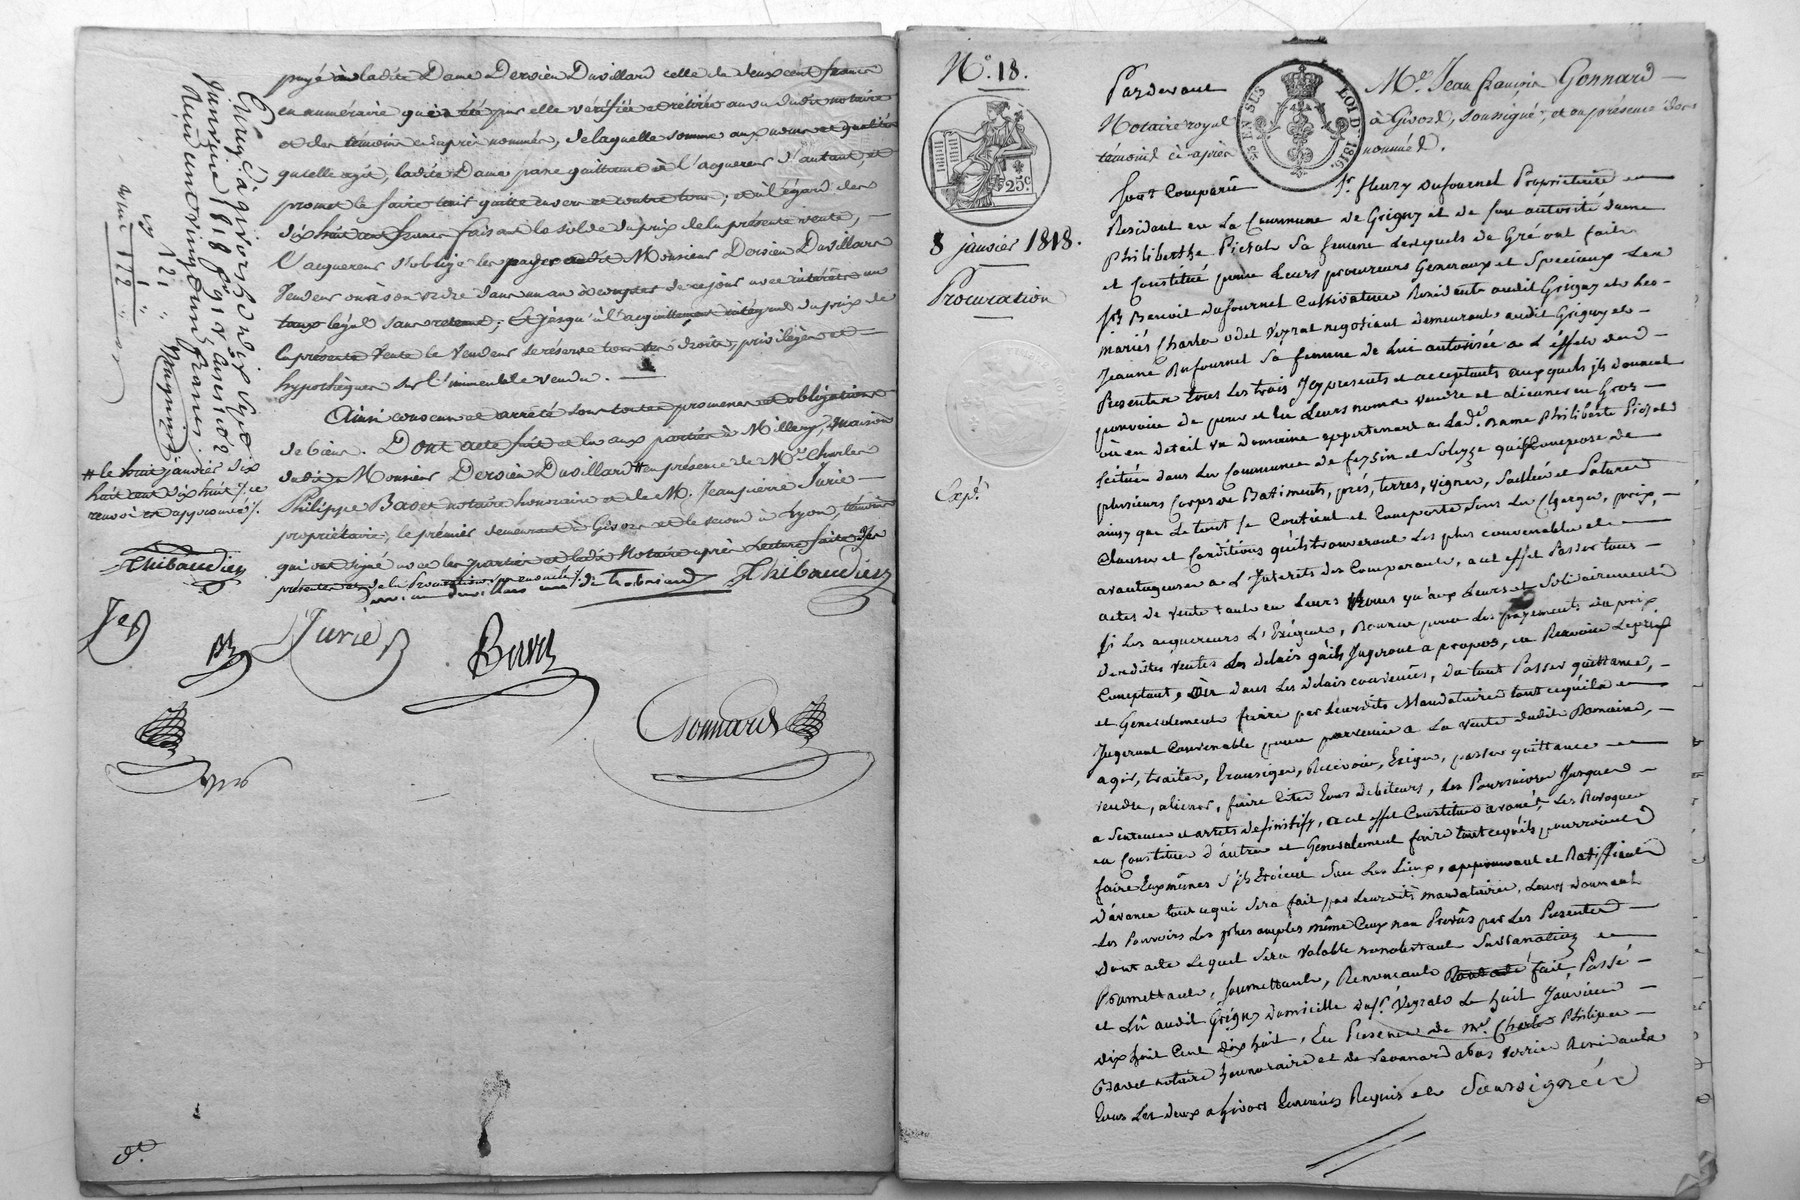 payé à ladite Dame Dervieu Duvillard celle de deux cent francs
en numéraire qui a été par elle vérifiée et retirée au vu dudit notaire
et des témoins ci après nommés, de laquelle somme aux noms et qualités
qu'elle agit, ladite Dame passe quittance à l'acquereur d'autant, et
promet le faire tenir quitte envers et contre tous; et à l'égard des
dix huit cent francs faisant le solde du prix de la présente vente, —
l'acquereur s'oblige les payer audit Monsieur Dervieu Duvillard
vendeur ou à son ordre dans un an à compter de ce jour avec intérêts au
taux légal sans retenue; et jusqu'à l'acquittement intégral du prix de
la présente vente le vendeur se réserve tous ses droits, privilèges et
hypothèques sur l'immeuble vendu. —
Ainsi convenu et arrêté sous toutes promesses et obligations
de biens. Dont acte fait et lu aux parties à Millery, maison
dudit Monsieur Dervieu Duvillard # en présence de Mr. Charles
Philippe Bavet notaire honoraire et de M. Jean pierre Jurie —
propriétaire, le premier demeurant à Givors et le second à Lyon, témoins
qui ont signé avec les parties et ledit Notaire après lecture faite des
présentes
Thibaudier
# le huit janvier dix
huit cent dix huit /. ce
renvoi est approuvé /.
Thibaudier
Jurie
Bavet
Gonnard
Enreg.é à givors le dix sept
Janvier 1818 f.o 91 v.o, case 1 et 2
Reçu cent vingt un francs
121 "
122 "
No. 18.
25c
8 janvier 1818.
Procuration
Exp.é
EN SUS
LOI DE 1816.
Pardevant Me. Jean francois Gonnard —
Notaire royal à Givors, soussigné, et en présence des
témoins ci-après nommés.
Sont Comparus Sr. fleury Dufournel Propriétaire —
Residant en La Commune de Grigny et de son autorité dame
Philiberthe Pichat Sa femme Lesquels de Gré ont fait
et Constitué pour Leurs procureurs Generaux et Speciaux Les
Srs Benoit Dufournel Cultivateur Residant audit Grigny et les
mariés Charles odet Veyrat negotiant demeurant audit Grigny et —
Jeanne Dufournel Sa femme de lui autorisée a L'effet des —
Presentes tous Les trois Icy presents et acceptants auxquels ils donnent
pouvoir de pour et En Leurs noms vendre et aliener en Gros —
où en detail un domaine appartenant a Lad.e Dame Philiberte Pichat
Scitué dans La Commune de feysin et Solaize qui se Compose de
plusieurs Corps de Batiments, prés, terres, vignes, Saulées et Patures
ainsy que Le tout Se Contient et Comporte Sous Les Charges, prix, —
Clauses et Conditions qu'ils trouveront Les plus convenables et —
avantageuses a L'Interêts des Comparants, a cet effet Passer tous —
actes de vente tant en Leurs noms qu'aux Leurs et Solidairement
Si Les acquereurs L'Exigent, donner pour les payements du prix
desdites ventes Les delais qu'ils Jugeront a propos, en Recevoir Le prix
Comptant, où dans Les delais convenus, du tout Passer quittance, —
et Generalement faire par Leursdits Mandataires tout ce qu'ils —
Jugeront Convenable pour parvenir a La vente dudit Domaine, —
agir, traiter, transiger, Recevoir, Exiger, passer quittance —
vendre, aliener, faire Citer tous debiteurs, Les Poursuivre Jusques —
a Sentence et arrets definitifs, a cet effet Constituer avoués, Les Revoquer
en Constituer d'autres et Generalement faire tout ce qu'ils pourroient
faire Euxmêmes S'ils Etoient Sur Les Lieux, approuvant et Ratiffiant
D'avance tout ce qui Sera fait par Leursdits mandataires, Leurs donnant
Les Pouvoirs Les plus amples même Ceux non Prevûs par Les Presentes —
Dont acte Lequel Sera Valable nonobstant Surannation —
Promettant, Soumettant, Renonceant fait, Passé —
et Lû audit Grigny domicille du Sr. Veyrat Le huit Janvier —
dix huit Cent dix huit, En Presence de mrs Charles Philippe —
Bavet notaire honnoraire et de Leonnard abas verrier Residants
tous Les deux a Givors temoins Requis et Soussignés